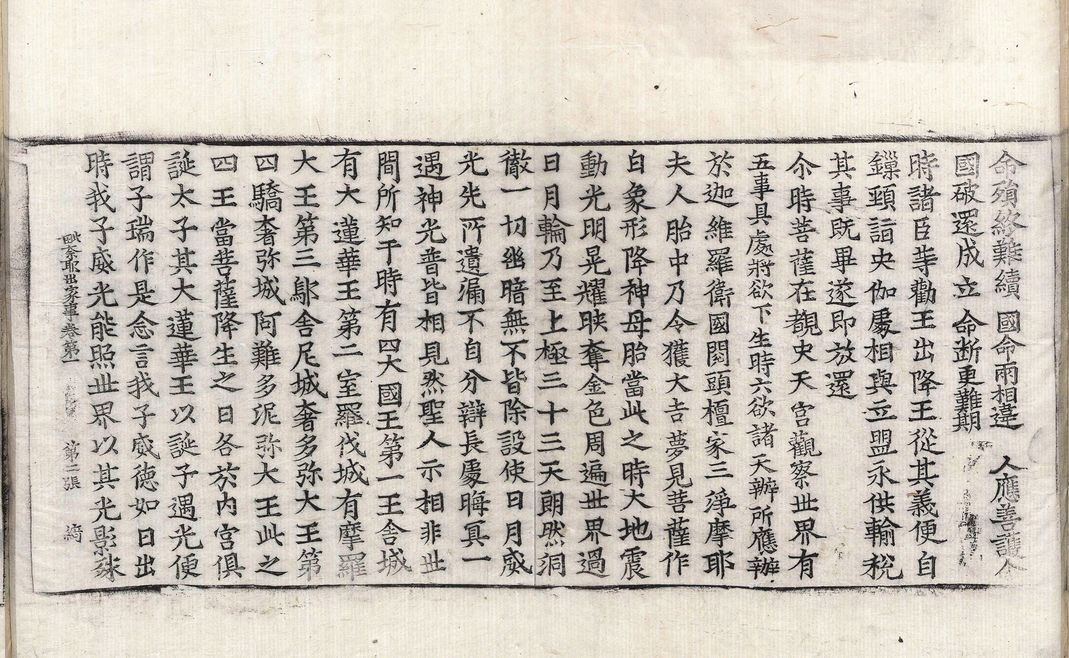 命殞終難續 國命兩相違 人應善護命
國破還成立 命断更難期
時諸臣等勸王出降王從其義便自
鏁頸詣央伽處相與立盟永供輸稅
其事既畢遂即放還
尒時菩薩在覩史天宮觀察世界有
五事具處將欲下生時六欲諸天辦所應辦
於迦維羅衛國閱頭檀家三淨摩耶
夫人胎中乃令獲大吉夢見菩薩作
白象形降神母胎當此之時大地震
動光明晃耀映奪金色周遍世界過
日月輪乃至上極三十三天朗然洞
徹一切幽暗無不皆除設使日月威
光先所遺漏不自分辯長處晦冥一
遇神光普皆相見然聖人示相非世
間所知于時有四大國王第一王舍城
有大蓮華王第二室羅伐城有摩羅
大王第三鄔舍尼城奢多弥大王第
四驕奢弥城阿難多泥弥大王此之
四王當菩薩降生之日各於内宮俱
誕太子其大蓮華王以誕子遇光便
謂子瑞作是念言我子威德如日出
時我子威光能照世界以其光影殊
毗奈耶出家事卷第一 第二張 綺